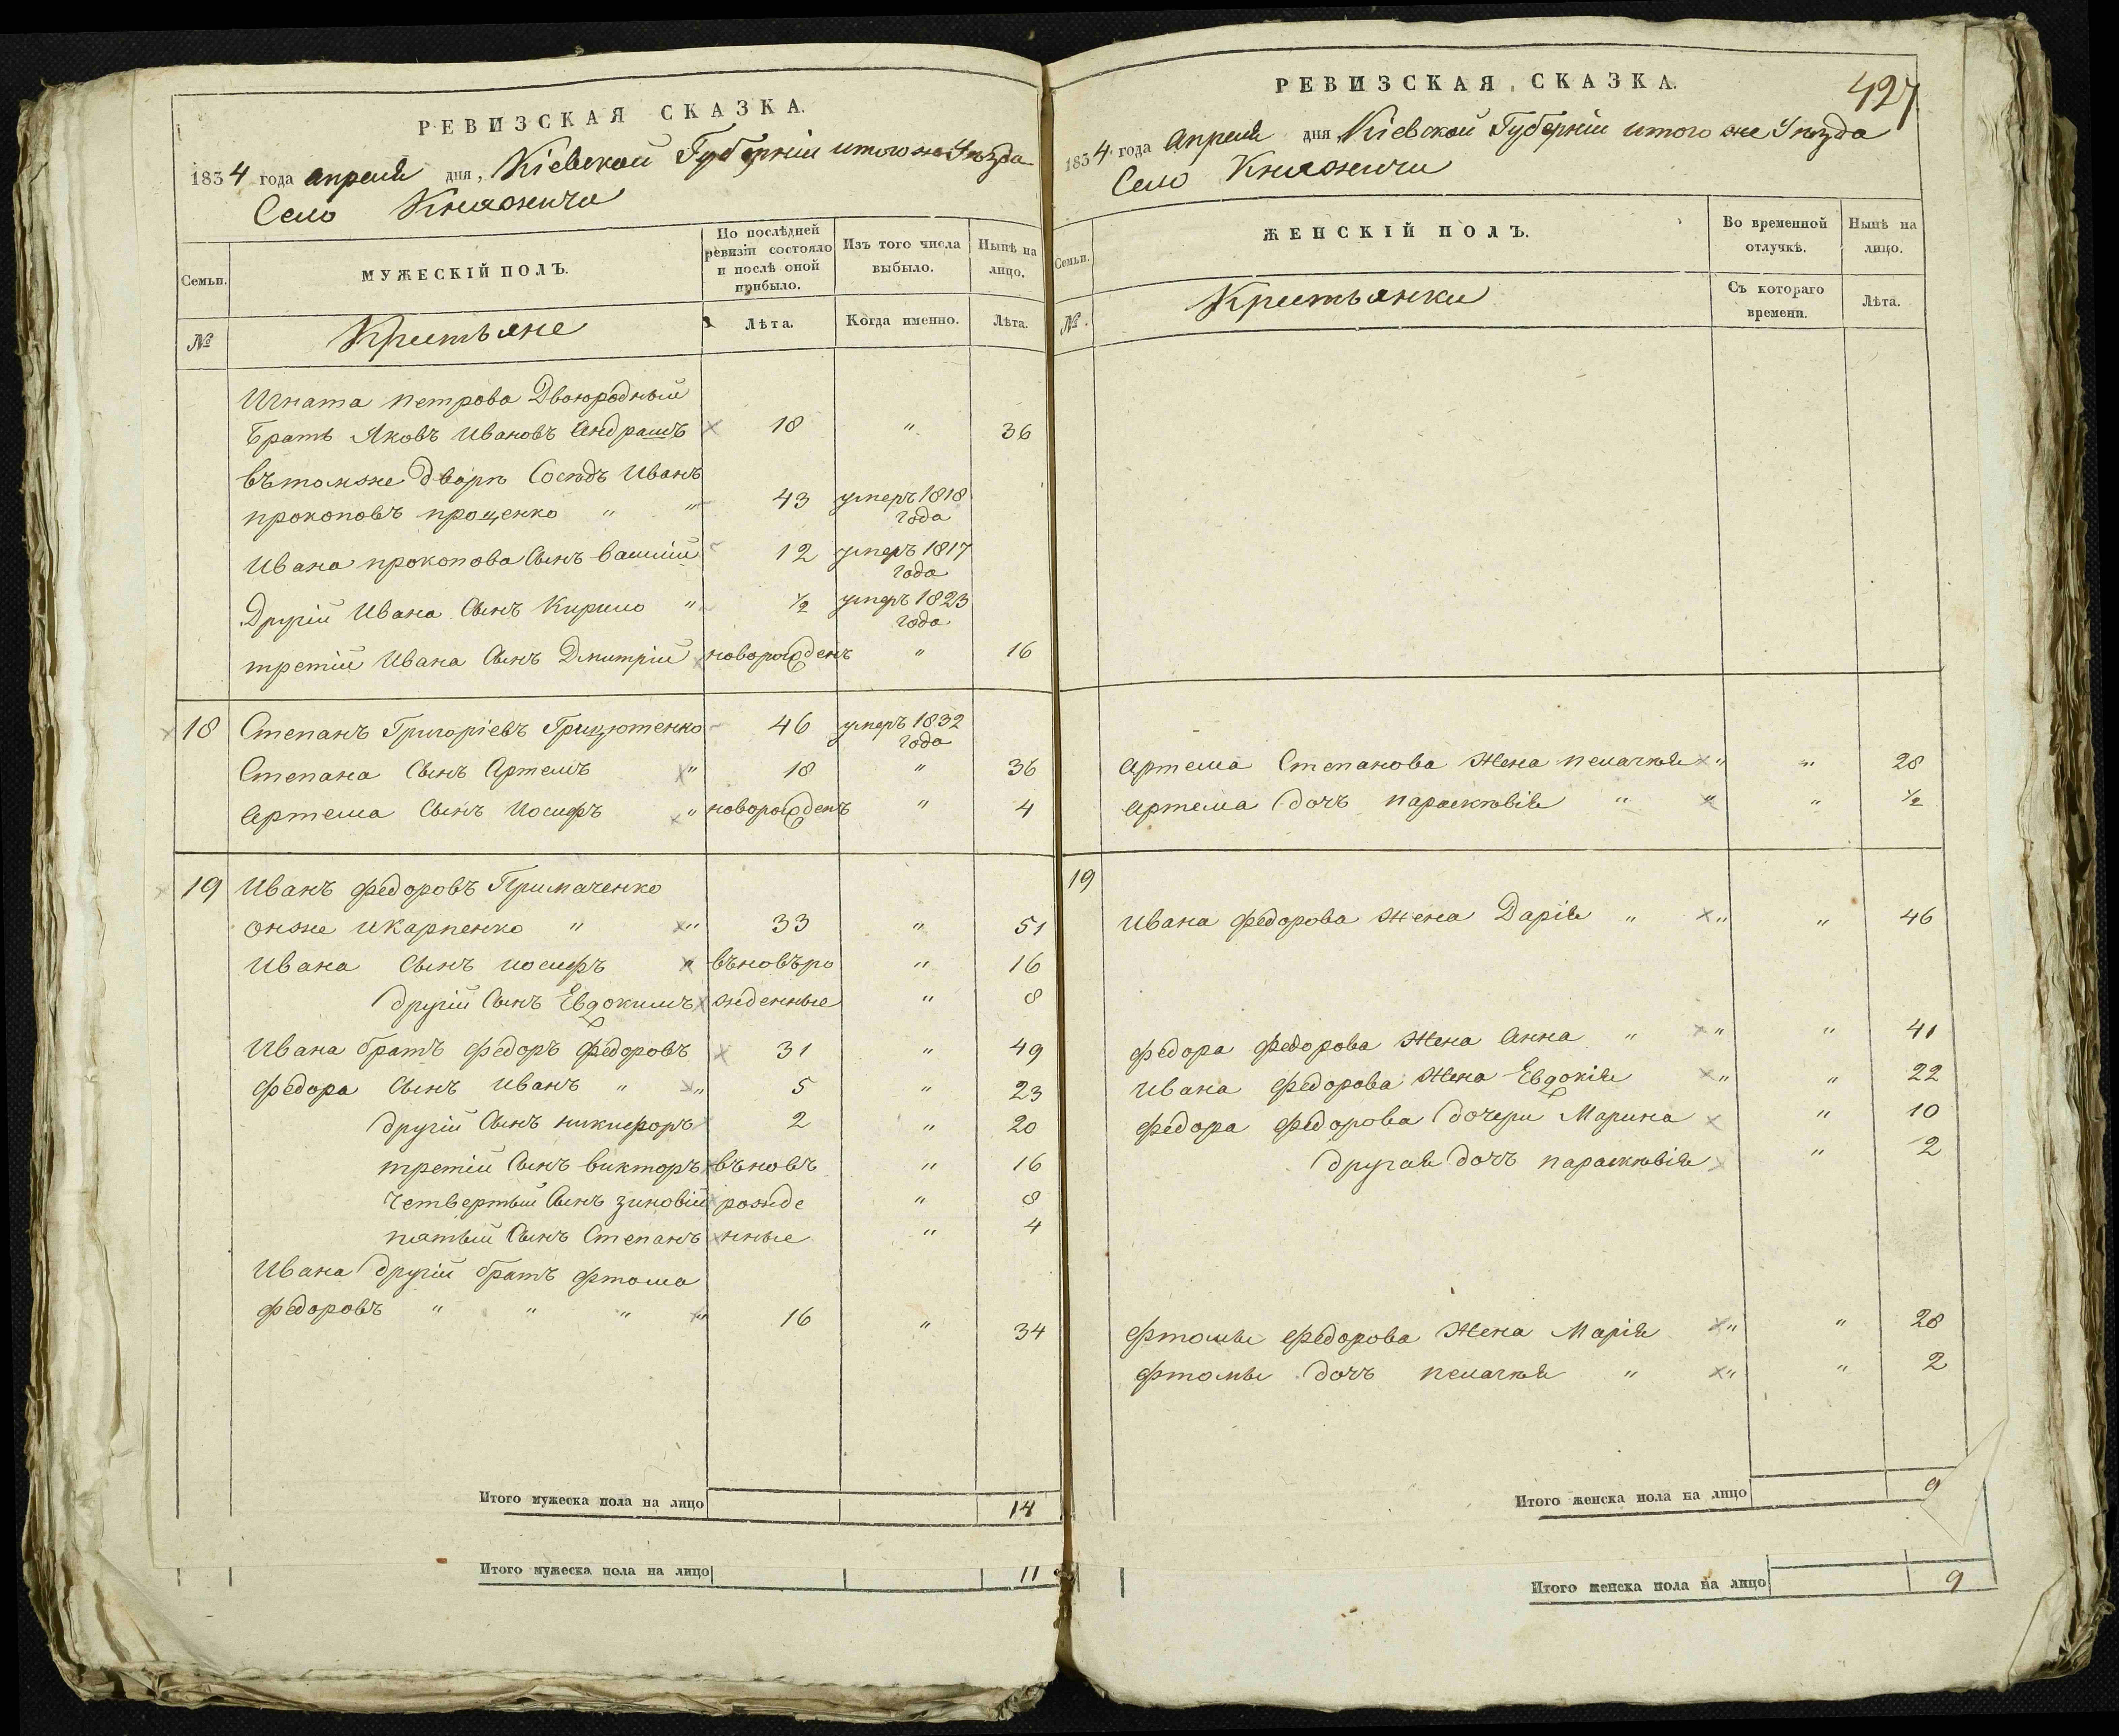 РЕВИЗСКАЯ СКАЗКА.
1834 года апреля дня, Кіевской Губерніи итогоже Уѣзда
Село Княжичи
Семьи.
МУЖЕСКІЙ ПОЛЪ.
По послѣдней ревизіи состояло и послѣ оной прибыло.
Изъ того числа выбыло.
Нынѣ на лицо.
№
Крестьяне
Лѣта.
Когда именно.
Лѣта.
Игната петрова Двоюродный
братъ Яковъ Ивановъ Андрашъ 18 " 36
вътомже дворѣ Сосѣдъ Иванъ
прокоповъ проценко " " 43 умеръ 1818 года
Ивана прокопова Сынъ василій 12 умеръ 1817 года
Другій Ивана Сынъ Кирило " ½ умеръ 1823 года
третій Ивана Сынъ Дмитрій новорожденъ " 16
18 Степанъ Григоріевъ Грицютенко 46 умеръ 1832 года
Степана Сынъ Артемъ " 18 " 36
Артема Сынъ Иосифъ " новорожденъ " 4
19 Иванъ федоровъ Примаченко
онже иКарпенко " " 33 " 51
Ивана Сынъ иосифъ " вьновъро " 16
другій Сынъ Евдокимъ жденные " 8
Ивана братъ федоръ федоровъ 31 " 49
федора Сынъ Иванъ " " 5 " 23
другій Сынъ никифоръ 2 " 20
третій Сынъ викторъ вьновъ " 16
Четвертый Сынъ зиновій рожде " 8
пятый Сынъ Степанъ нные " 4
Ивана другій братъ фтома
федоровъ " " " " 16 " 34
Итого мужеска пола на лицо 14
Итого мужеска пола на лицо 11
РЕВИЗСКАЯ СКАЗКА.
427
1834 года Апреля дня Кіевской Губерніи итого же Уѣзда
Село Княжичи
Семьи.
ЖЕНСКІЙ ПОЛЪ.
Во временной отлучкѣ.
Нынѣ на лицо.
№.
Крестьянки
Съ котораго времени.
Лѣта.
Артема Степанова Жена пелагѣя " " 28
Артема дочъ парасковія " " " ½
19
Ивана федорова жена Дарія " " " 46
федора федорова Жена Анна " " " 41
Ивана федорова Жена Евдокія " " 22
федора федорова дочери Марина " 10
другая дочъ парасковія " 2
фтомы федорова Жена Марія " " 28
фтомы дочъ пелагѣя " " " 2
Итого женска пола на лицо 9
Итого женска пола на лицо 9